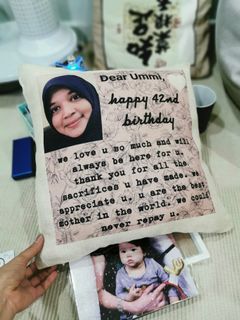 Dear Ummi,
happy 42nd
birthday
we love u so much and will
always be here for u.
thank you for all the
sacrifices u have made. we
appreciate u. u are the best
mother in the world. we could
never repay u.
知足